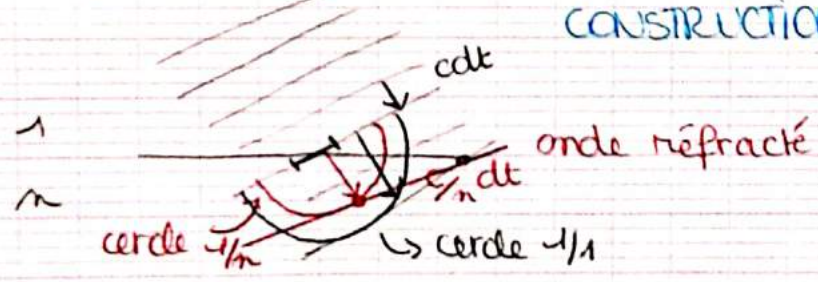 CONSTRUCTIO
cdt
1
onde réfracté
n
c/n dt
cercle 1/n
↳ cercle 1/1